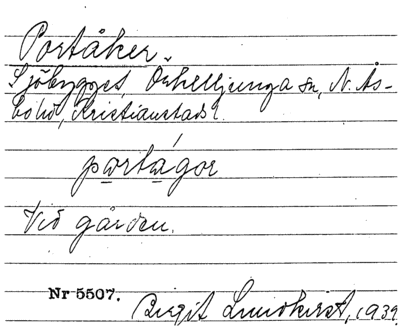 Portåker.
Sjöbygget, Örkelljunga sn, N. Ås-
bo hd, Kristianstads l.
partágor
Vid gården.
Nr 5507.
Birgit Lundkvist, 1939